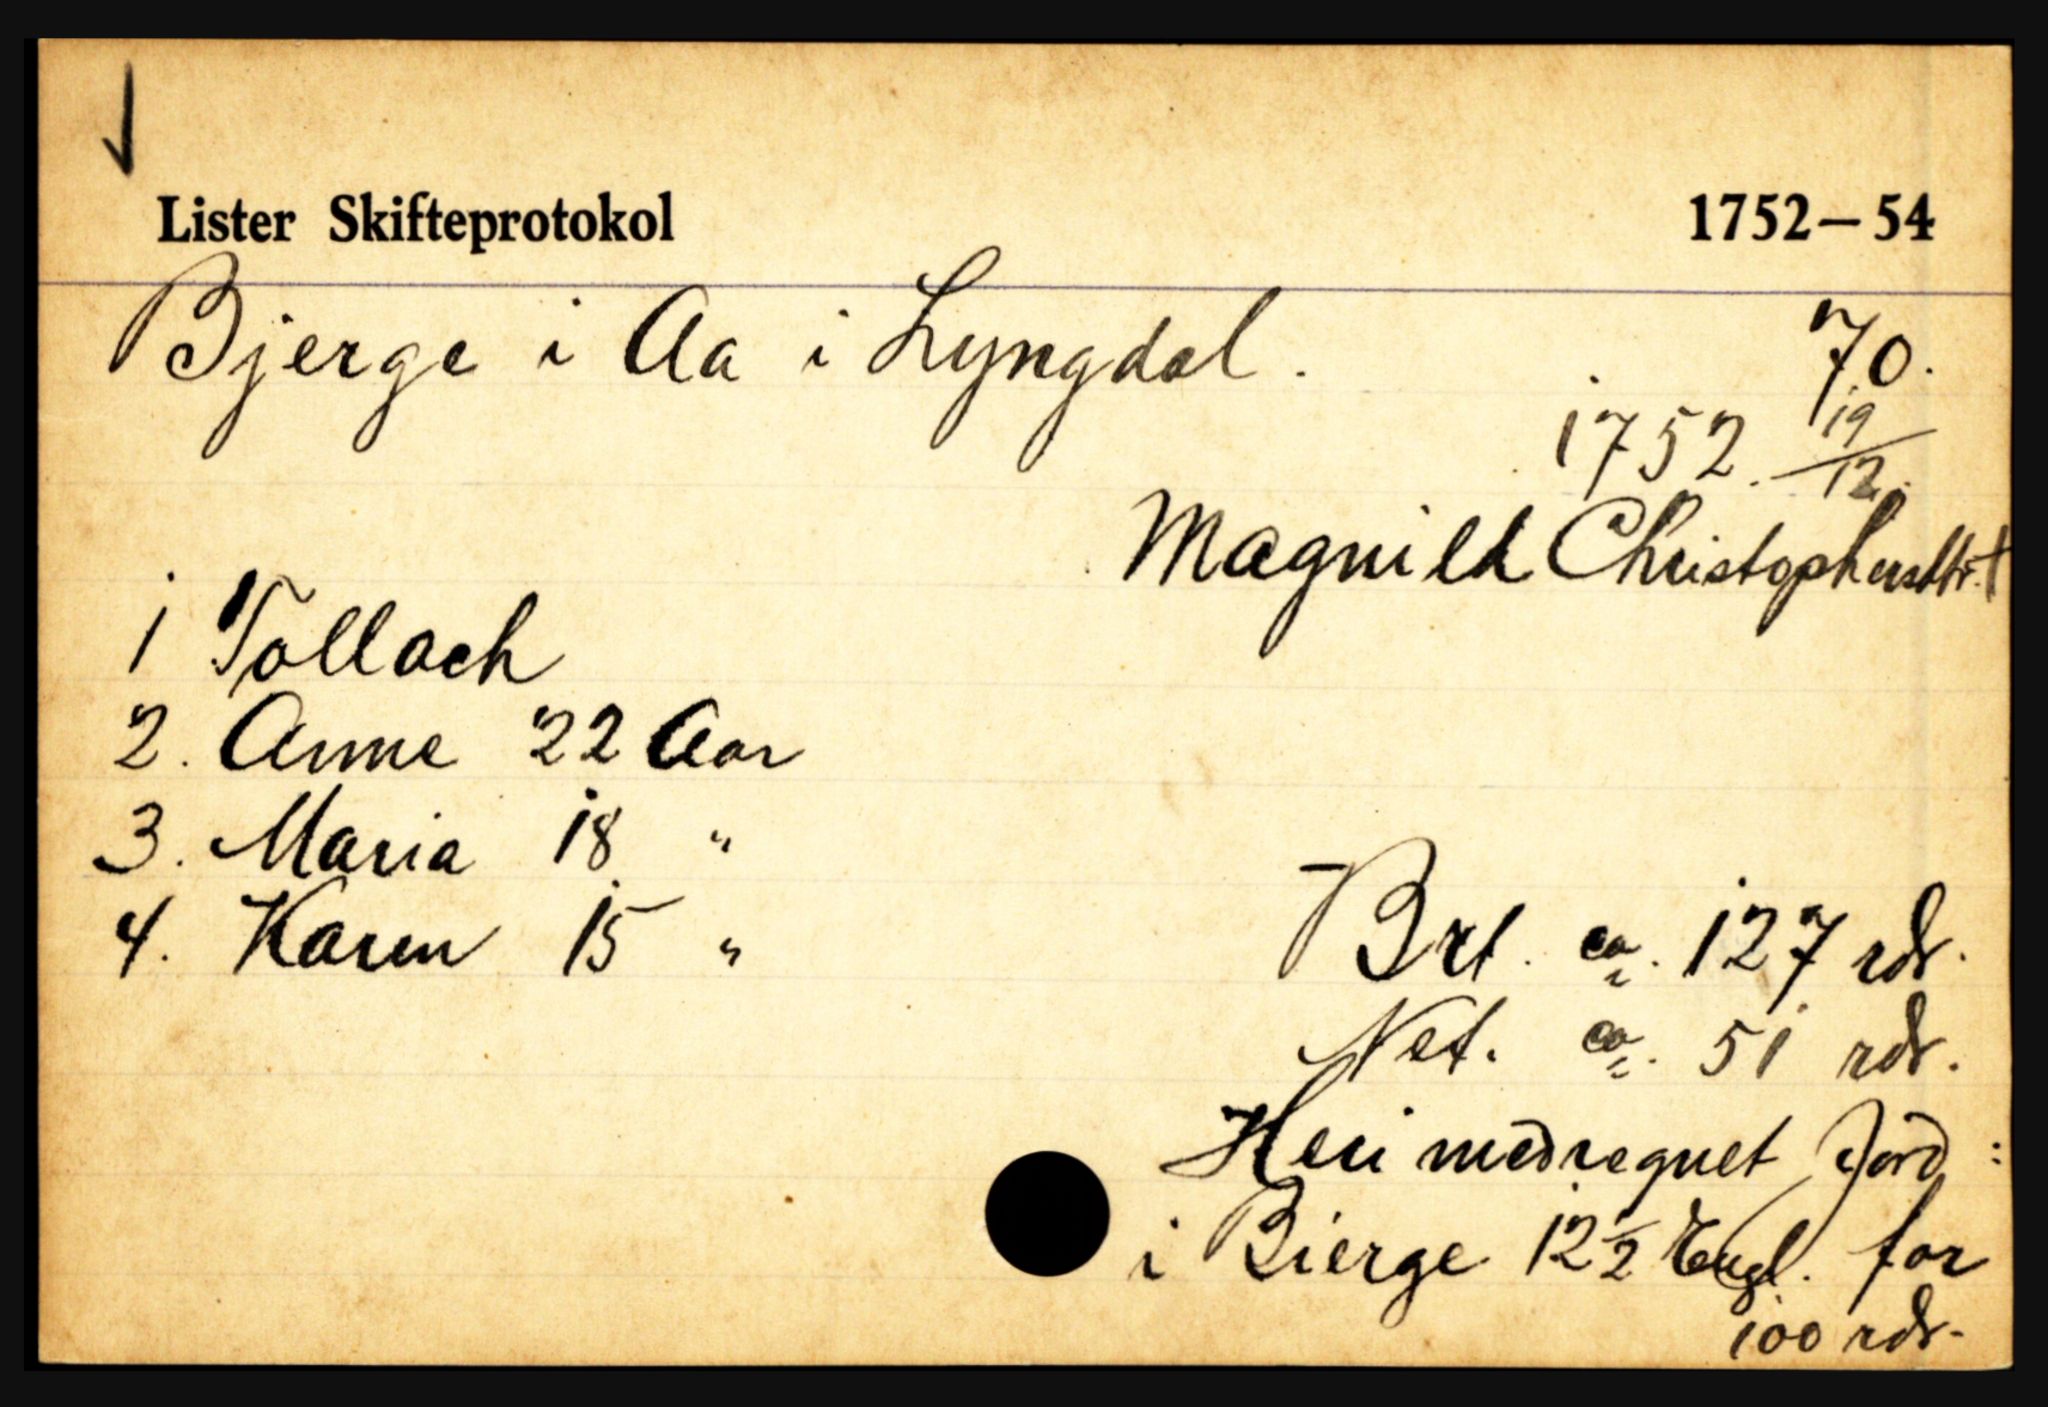 Lister Skifteprotokol 1752—54
Bjerge i Aa i Lyngdal. 70.
1752. 19/12.
Magnild Christophersdtr. †
1 Tollach
2. Anne 22 Aar
3. Maria 18 "
4. Karen 15 "
Brt. ca. 127 rdr.
Net. ca. 51 rdr.
Heri medregnet Jord:
i Bierge 12 1/2 Engl. for
100 rdr.